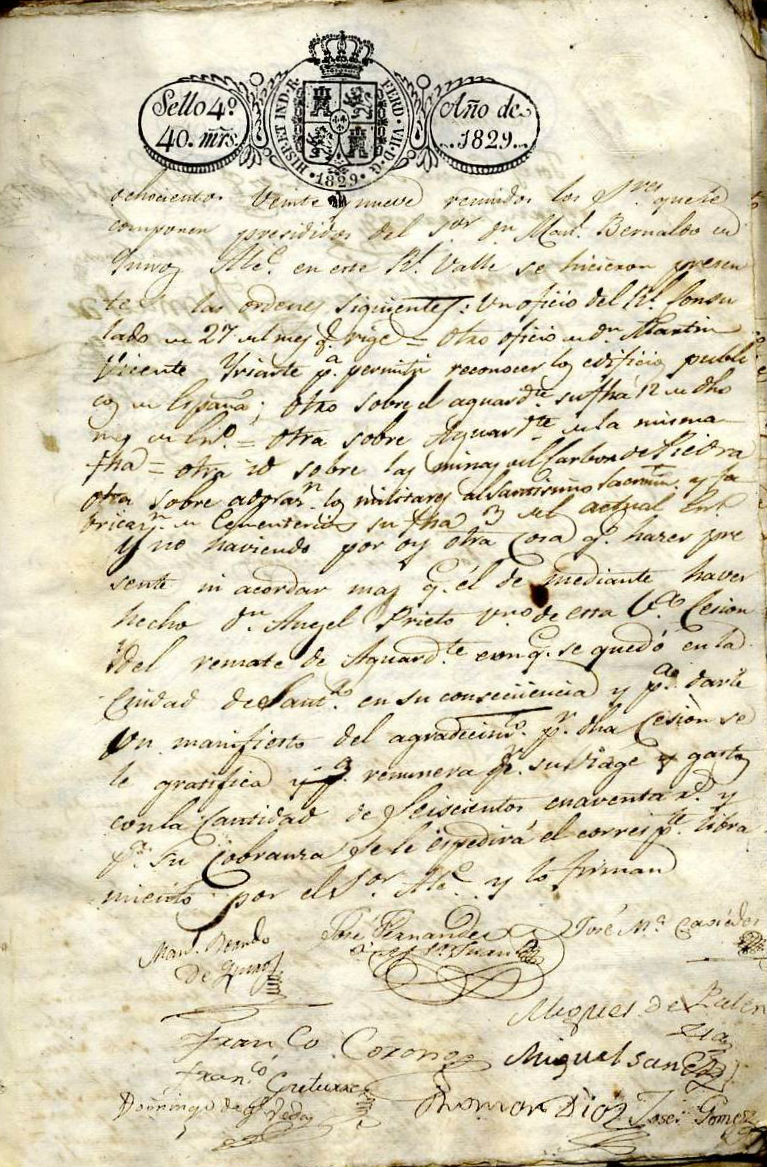 Sello 4º
40. mrs.
HISP. ET IND. R.
FERD. VII. D. G.
1829
Año de
1829.
ochocientos Veinte y nueve reunidos los Sres. que le
componen presididos del Sor. Dn. Manl. Bernaldo de
Quiros Alc. en este Rl. Valle se hicieron presen
tes las ordenes siguientes: Un oficio del Rl. Consu
lado de 27 del mes q. rige = Otro oficio de dn. Martin
Vicente Yriarte pa. permitir reconocer los edificios publi
cos de España; Otro sobre el aguardte. su fha 12 de dho
mes de En. = Otra sobre Aguardte. de la misma
fha = otra id sobre las minas del Carbon de Piedra
otra sobre los militares al Santisimo Sacramto. y fa
bricar de Cementerios su fha 3 del actual
Y no haviendo por oy otra Cosa q. hazer pre
sente ni acordar mas q. él de mediante haver
hecho Dn. Angel Prieto Vno. de esta Va. Cesion
del remate de Aguardte. con q. se quedó en la
Ciudad de Santo. en su consecuencia y pa. darle
Un manifiesto del agradecimto. pr. dha Cesion se
le gratifica y remunera pr. su Viage y gastos
con la Cantidad de Seiscientos cuarenta rs. y
pa. su Cobranza se le espedirá el correspte. libra
miento por el Sor. Alc. y lo firman
Manl. Bernldo
De Quiros
José Fernandez
José Ma. Caviedes
Miguel de Palen
zia
Franco
Miguel Sanchez
Franco.
Domingo de
Roman Diaz
Jose Gomez